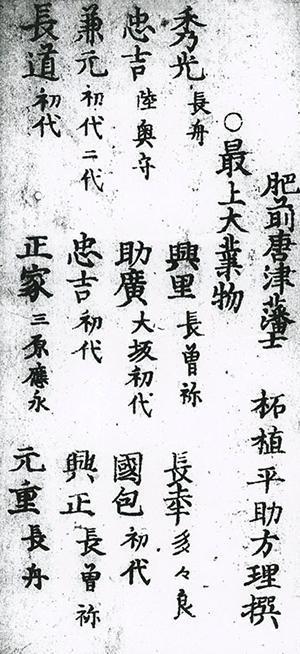 肥前唐津藩士　柘植平助方理撰
○最上大業物
秀光 長舟　興里 長曽祢　長幸 多々良
忠吉 陸奥守　助廣 大坂初代　國包 初代
兼元 初代二代　忠吉 初代　興正 長曽祢
長道 初代　正家 三原應永　元重 長舟